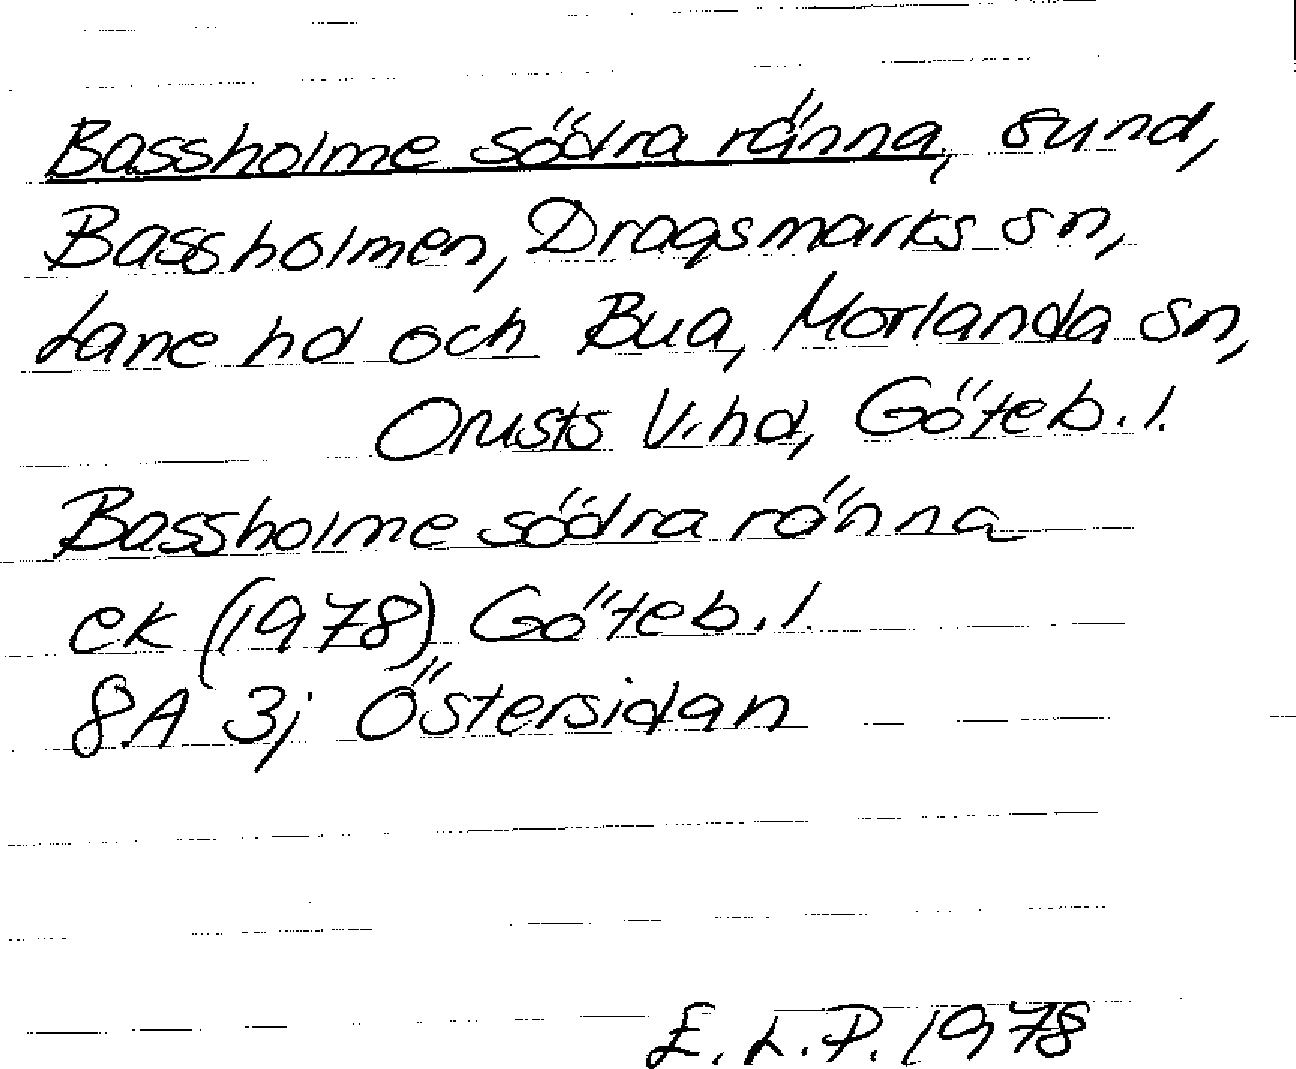 Bassholme södra ränna, sund,
Bassholmen, Dragsmarks sn,
Lane hd och Bua, Morlanda sn,
Orusts V.hd, Göteb.l.
Bassholme södra ränna
ek (1978) Göteb.l.
8A 3j Östersidan
E.L.P. 1978